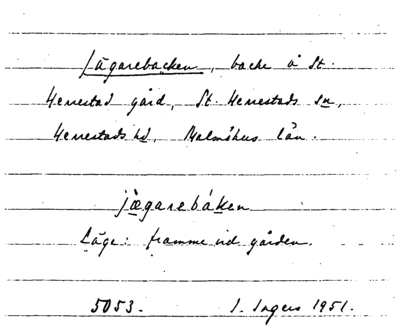 Jägarebacken, backe å St.
Herrestad gård, St. Herrestads sn,
Herrestads hd, Malmöhus län.
jægarebáken
Läge: framme vid gården.
5053. I. Ingers 1951.